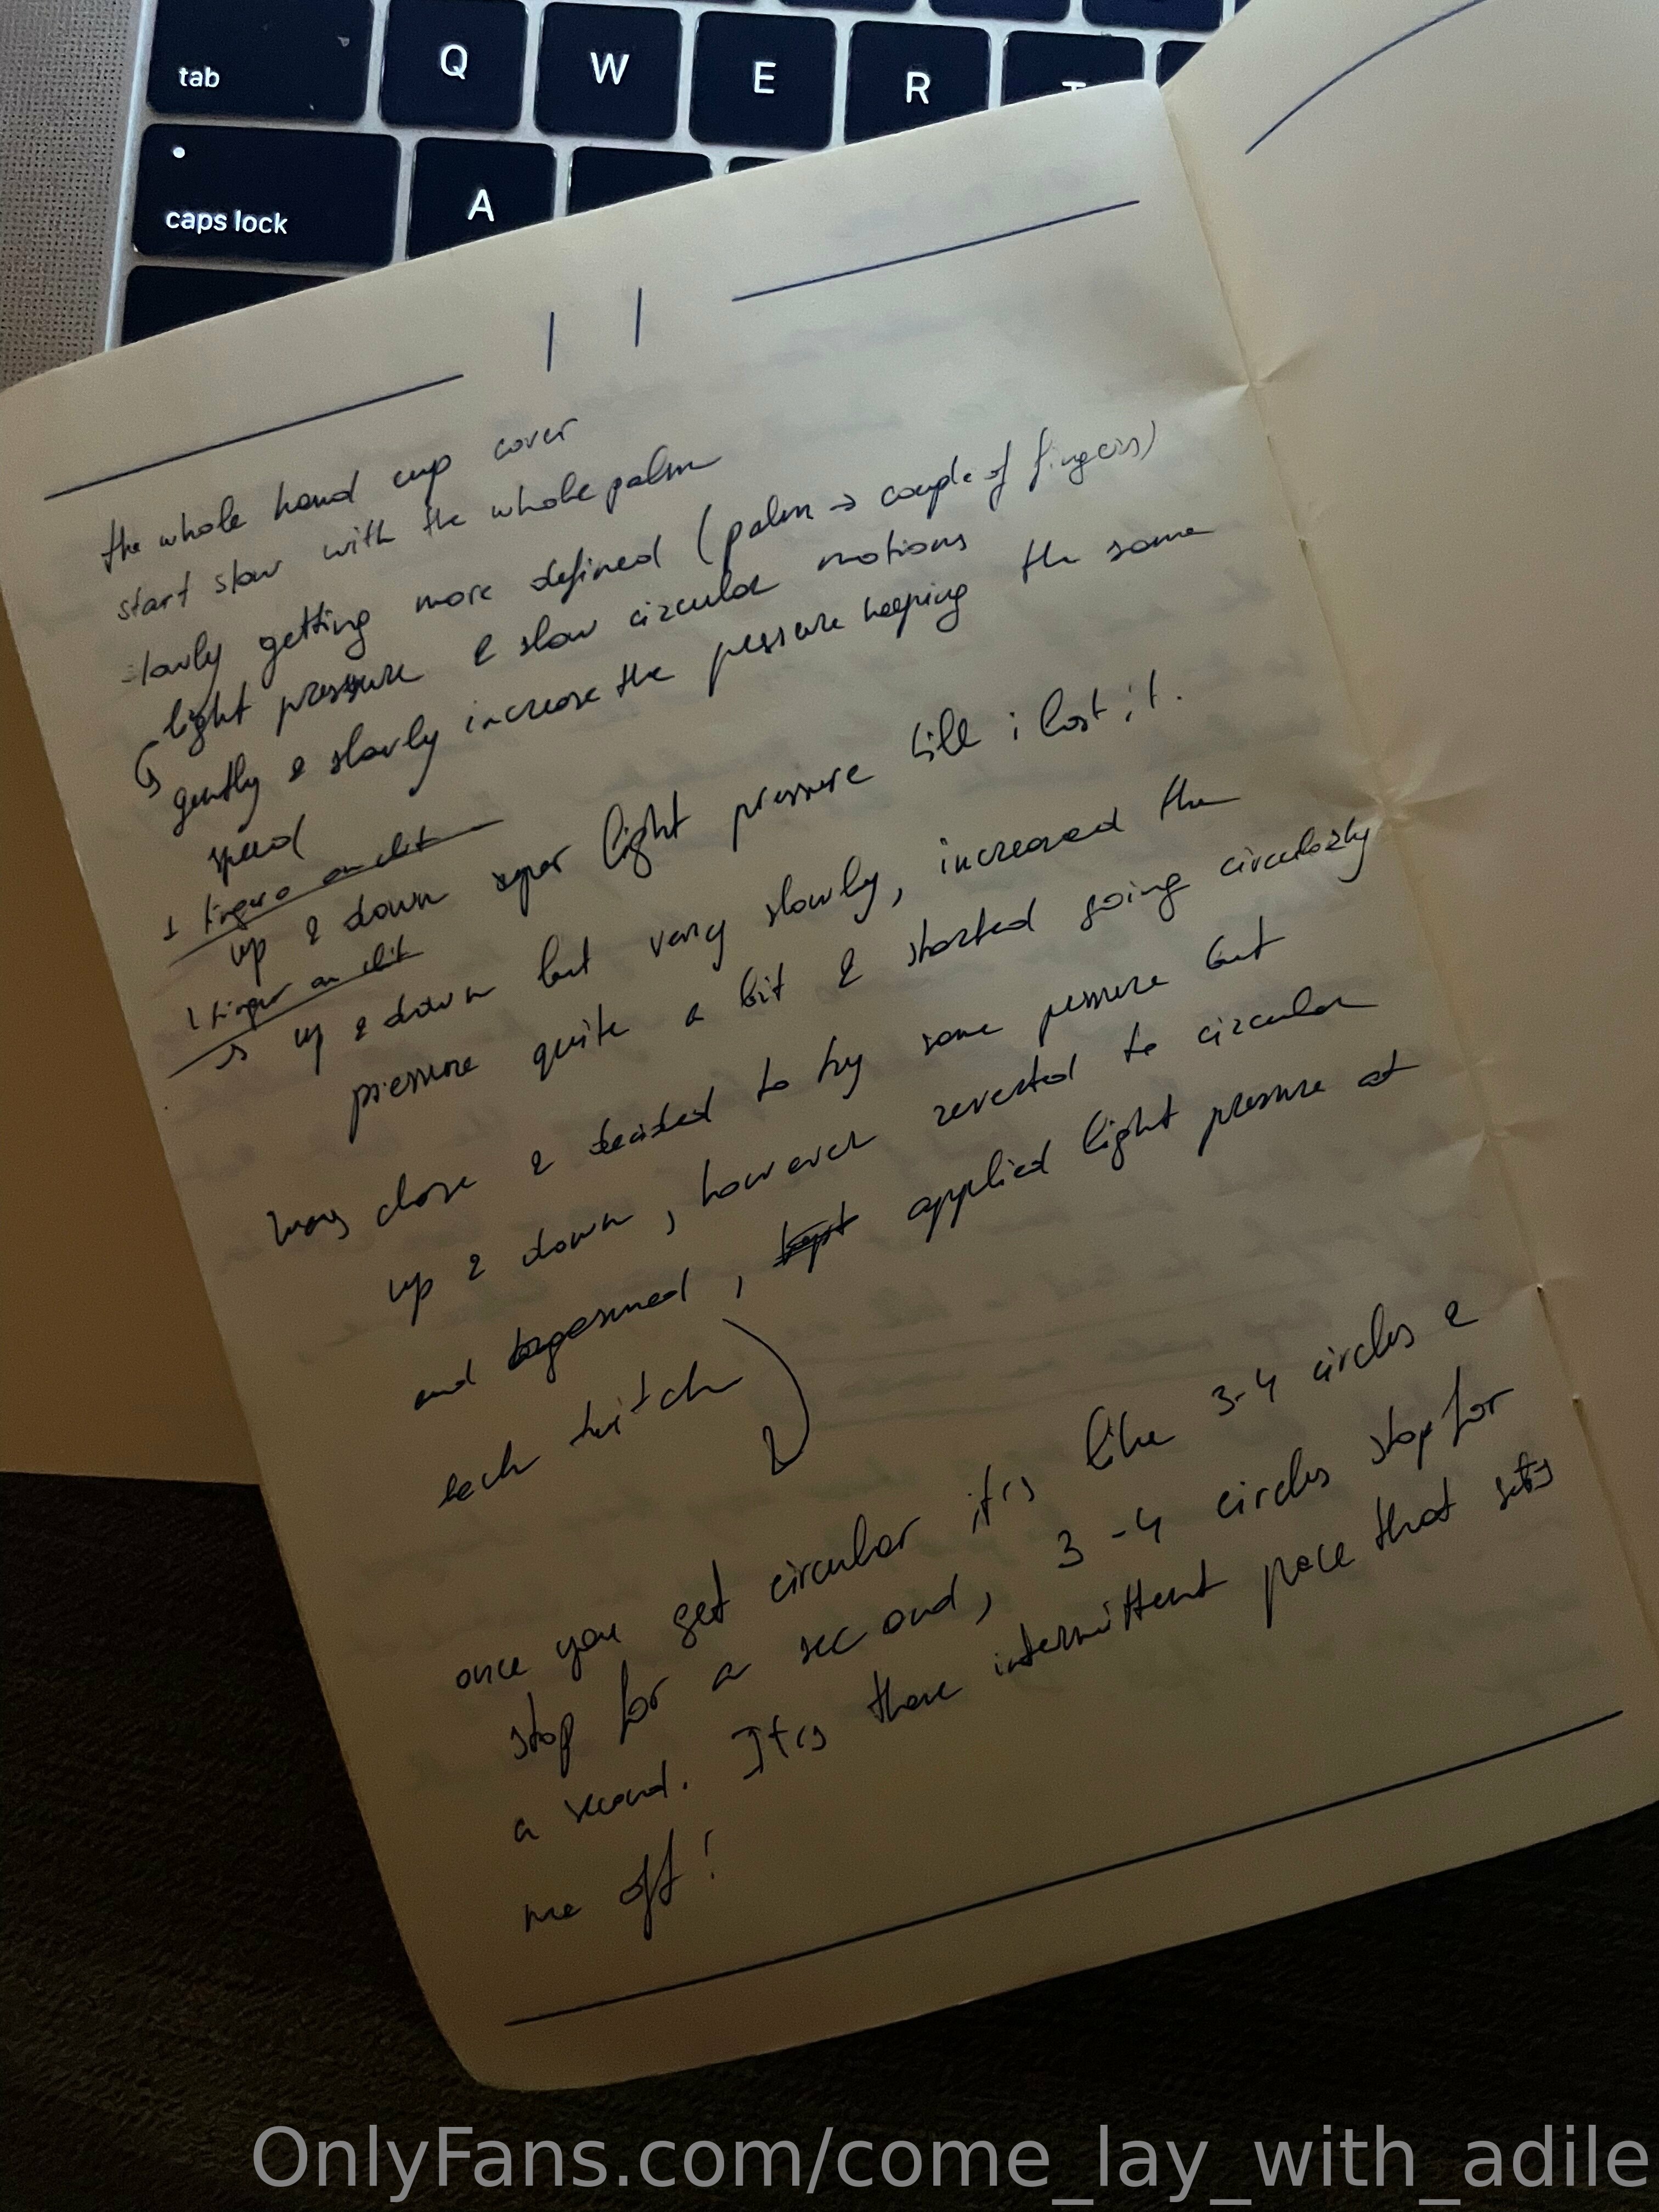 tab Q W E R T
caps lock A
the whole hand cup cover
start slow with the whole palm
slowly getting more defined (palm → couple of fingers)
light pressure & slow circular motions
gently & slowly increase the pressure keeping the same
speed
1 finger on clit
up & down super light pressure till i lost it.
1 finger on clit
→ up & down but very slowly, increased the
pressure quite a bit & started going circularly
close & decided to try same pressure but
up & down, however reverted to circular
and orgasmed, kept applied light pressure at
each twitch
once you get circular it's like 3-4 circles &
stop for a second, 3-4 circles stop for
a second. It's there intermittent pace that sets
me off!
OnlyFans.com/come_lay_with_adile